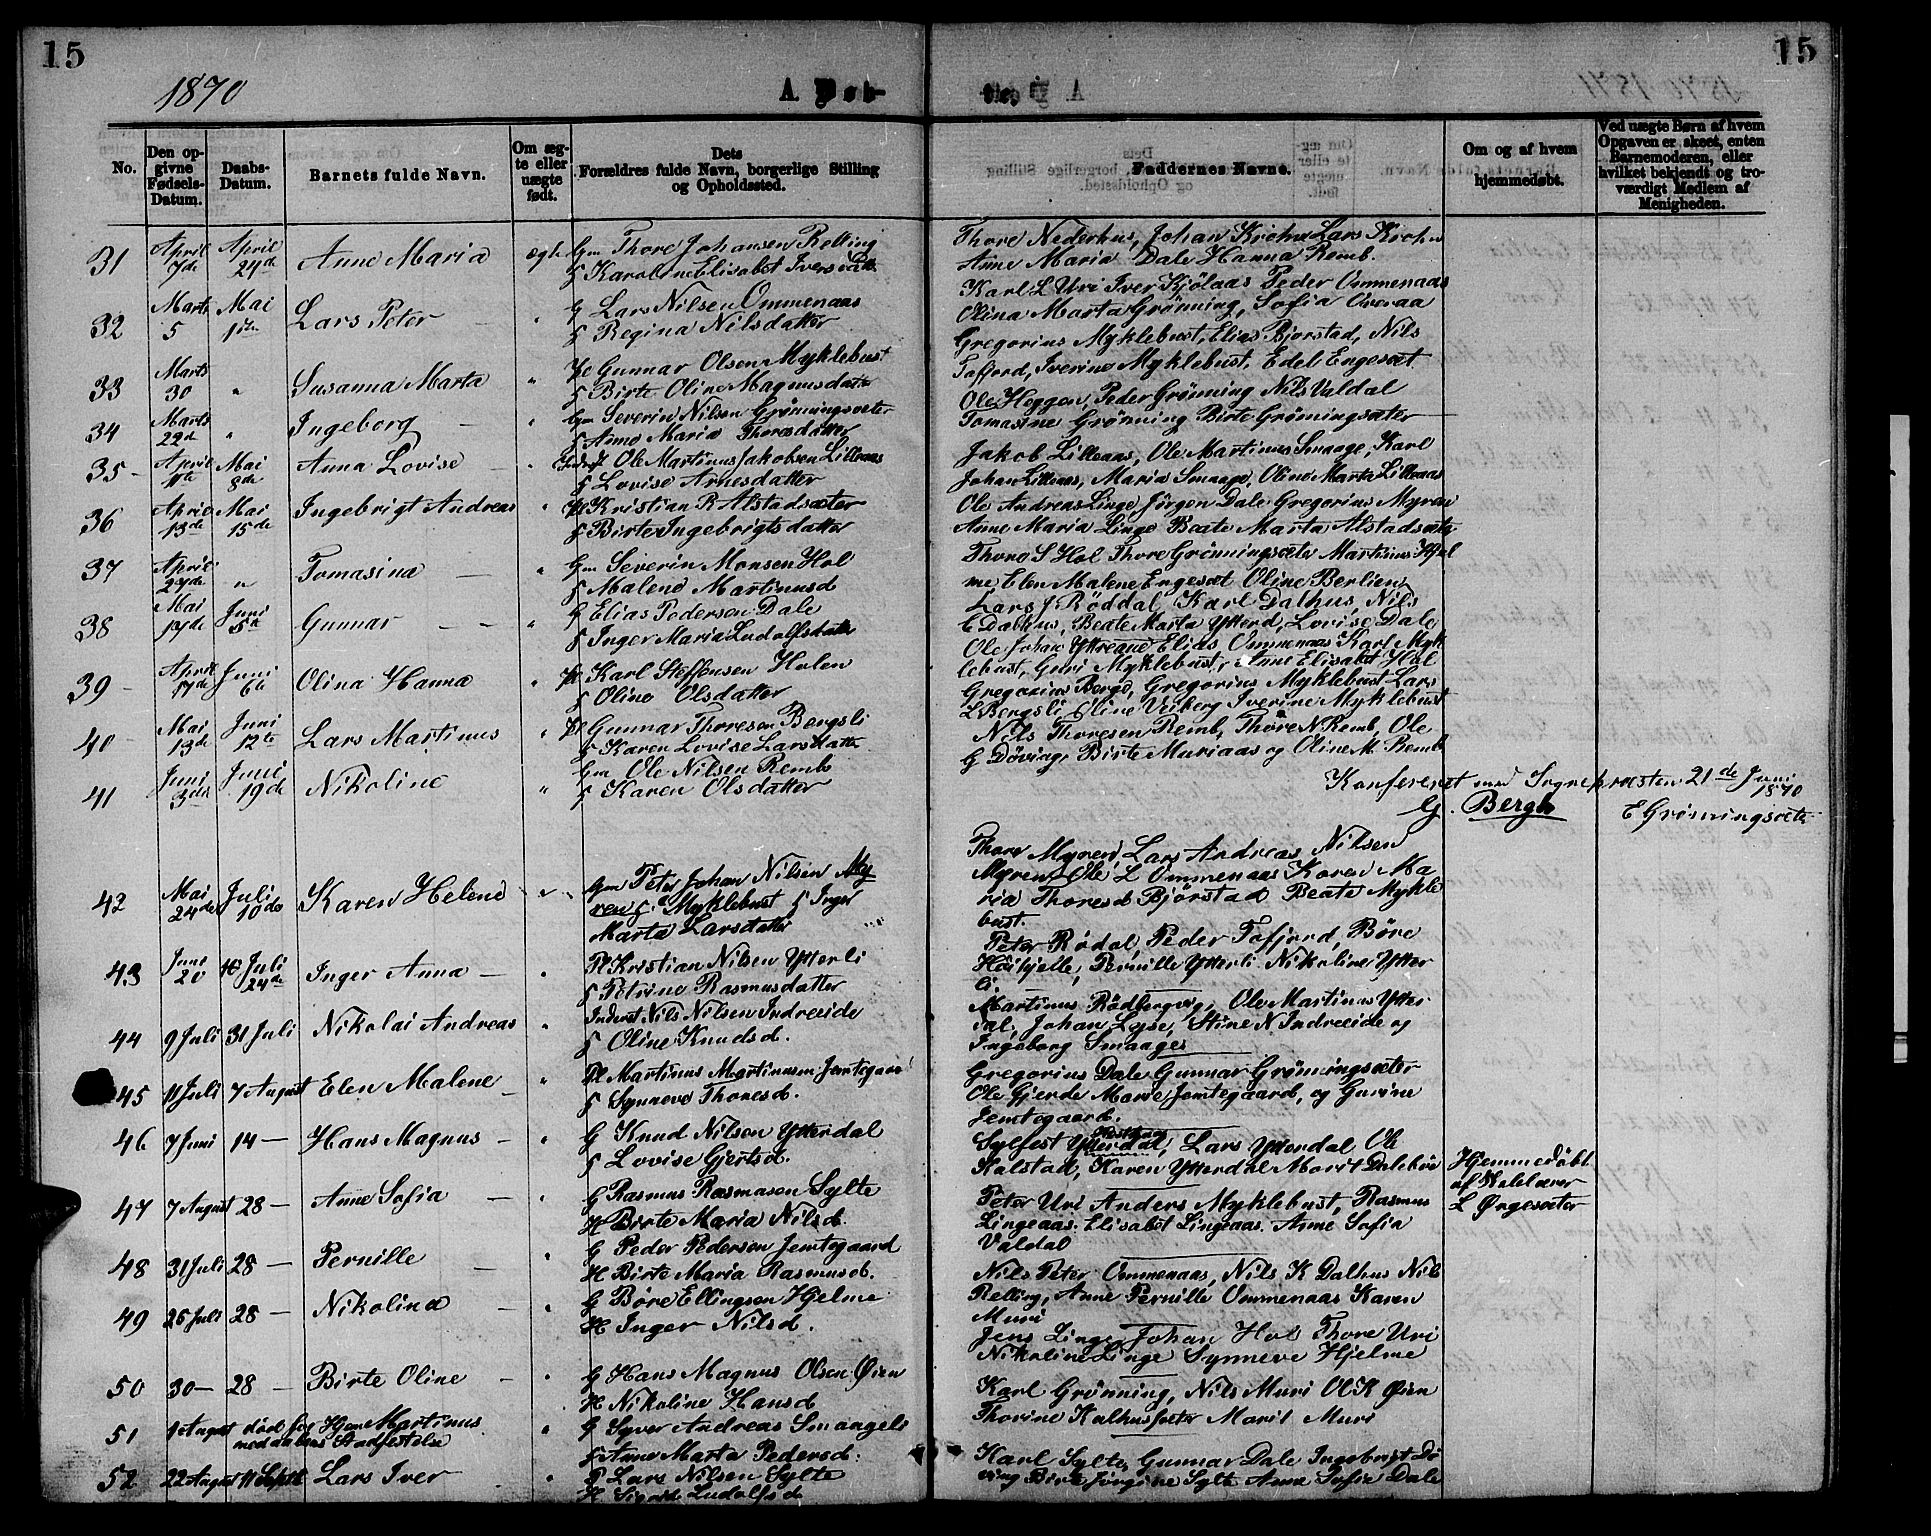 15
15
1870
A. Døb-
No.
Den op-
givne
Fødsels-
Datum.
Daabs-
Datum.
Barnets fulde Navn.
Om æg-
te eller
uægte
født.
Dets
Forældres fulde Navn, borgerlige Stilling
og Opholdssted.
Faddernes Navne.
Om og af hvem
hjemmedøbt.
Ved uægte Børn af hvem
Opgaven er skeet, enten
Barnemoderen, eller
hvilket bekjendt og tro-
værdigt Medlem af
Menigheden.
31 April 7de April 24de Anne Maria ægte Gm Thore Johansen Relling
Karoline Elisabet Iversdatter
Thore Nederhus, Johan Krohn Lars Krohn
Anne Maria Dale Hanna Remb.
32 Marts 5 Mai 1ste Lars Peter — " G Lars Nilsen Ommenaas
Regina Nilsdatter
Karl L Uri Iver Kjølaas Peder Ommenaas
Olina Marta Grønning, Sofia Overaa
33 Marts 30 " Susanna Marta " Gunnar Olsen Myklebust
Birte Oline Magnusdatter
Gregorius Myklebust, Elias Bjorstad, Nils
Tafjord, Iverine Myklebust, Edel Engeset
34 Marts 22de " Ingeborg — " Gm Severin Nilsen Grønningsæter
Anne Maria Thoresdatter
Ole Heggen, Peder Grønning Nils Valdal
Tomasine Grønning Birte Grønningsæter
35 - April 11te Mai 8de Anna Lovise — " Ole Martinus Jakobsen Lilleaas
Lovise Arnesdatter
Jakob Lilleaas, Ole Martinus Smaage, Karl
Johan Lilleaas, Maria Smaage, Oline Marta Lilleaas
36 April 13de Mai 15de Ingebrigt Andreas " Kristian R Alstadsæter
Birte Ingebrigtsdatter
Ole Andreas Linge, Jörgen Dale Gregorius Myren
Anne Maria Linge Beate Marta Alstadsæter
37 April 24de " Tomasina — " Gm Severin Monsen Hol
Malene Martinusd
Thore S Hol Thore Grønningsæter Martinus Hjel
me Elen Malene Engeset Oline Berlien
38 Mai 14de Juni 5te Gunnar — — " G Elias Pedersen Dale
Inger Maria Ludolfsdatter
Lars J Röddal, Karl Dalhus, Nils
E Dalhus, Beate Marta Ytterd, Lovise Dale
39 - April 17de Juni 6te Olina Hanna " Karl Steffensen Holen
Oline Olsdatter
Ole Johan Yttreand Elias Ommenaas Karl Myk
lebust, Guri Myklebust, Anne Elisabet Hol
40 - Mai 13de Juni 12te Lars Martinus " Gunnar Thoresen Bergsli
Karen Lovise Larsdatter
Gregorius Berge, Gregorius Myklebust Lars
L Bergsli Oline Veiberg Iverine Myklebust
41 Juni 3die Juni 19de Nikoline " Gm Ole Nilsen Remb
Karen Olsdatter
Nils Thoresen Remb, Thore N Remb, Ole
G Døving, Birte Muriaas og Oline M. Remb
Konfereret med Sognepræsten 21de Juni
1870
G. Bergh E Grønningsæter
42 Mai 24de Juli 10de Karen Helene " Gm Peter Johan Nilsen My
ren Myklebust Inger
Marta Larsdatter
Thore Myren, Lars Andreas Nilsen
Myren, Ole L Ommenaas Karen Ma
ria Thoresd Bjørstad Beate Mykle
bust.
43 Juni 20 Juli 24de Inger Anna — " Pl Kristian Nilsen Ytterli
Petrine Rasmusdatter
Peter Rødal, Peder Tafjord, Børe
Høihjelle, Pernille Ytterli Nikoline Ytter
li.
44 9 Juli 31 Juli Nikolai Andreas " Inderst Nils Nilsen Indreeide
Oline Knudsd.
Martinus Rødbergvig, Ole Martinus Ytter
dal, Johan Lyse, Stine N Indreeide og
Ingeborg Smaage
45 11 Juli 7 August Elen Malene — " Pl Martinus Martinusen Jemtegaard
Synneve Thoresd.
Gregorius Dale Gunnar Grønningsæter
Ole Gjerde Marie Jemtegaard, og Gurine
Jemtegaard.
46 7 Juni 14 — Hans Magnus — " G Knud Nilsen Ytterdal
Lovise Gjertsd.
Sylfest Ytterdal, Lars Ytterdal Ole
Kalstad, Karen Ytterdal Marit Dalebø
Hjemmedøbt
af Skolelærer
L Øngesæter
47 7 August 28 — Anne Sofia — " G Rasmus Rasmusen Sylte
H Birte Maria Nilsd.
Peter Uri Anders Myklebust, Rasmus
Lingeaas. Elisabet Lingeaas. Anne Sofia
Valdal
48 31 Juli 28 — Pernille — " G Peder Pedersen Jemtegaard
H Birte Maria Rasmusd.
Nils Peter Ommenaas, Nils K Dalhus Nils
Relling, Anne Pernille Ommenaas Karen
Muri
49 25 Juli 28 — Nikolina — " G Børe Ellingsen Hjelme
H Inger Nilsd.
Jens Linge Johan Hol Thore Uri
Nikoline Linge Synneve Hjelme
50 30 — 28 — Birte Oline — " G Hans Magnus Olsen Øien
H Nikoline Hansd
Karl Grønning, Nils Muri Ol K Øien
Thorine Kalhussæter Marit Muri
51 1 August død før Hjem Martinus " G Syver Andreas Smaagels
meddaabens Stadfestelse
Anne Marta Pedersd.
52 22 August 11 Septb Lars Iver " Pl Lars Nilsen Sylte
H Sigrid Ludolfsd
Karl Sylte, Gunnar Dale Ingebrigt Dø
ving Birte Jørgine Sylte Anne Sofie Dale